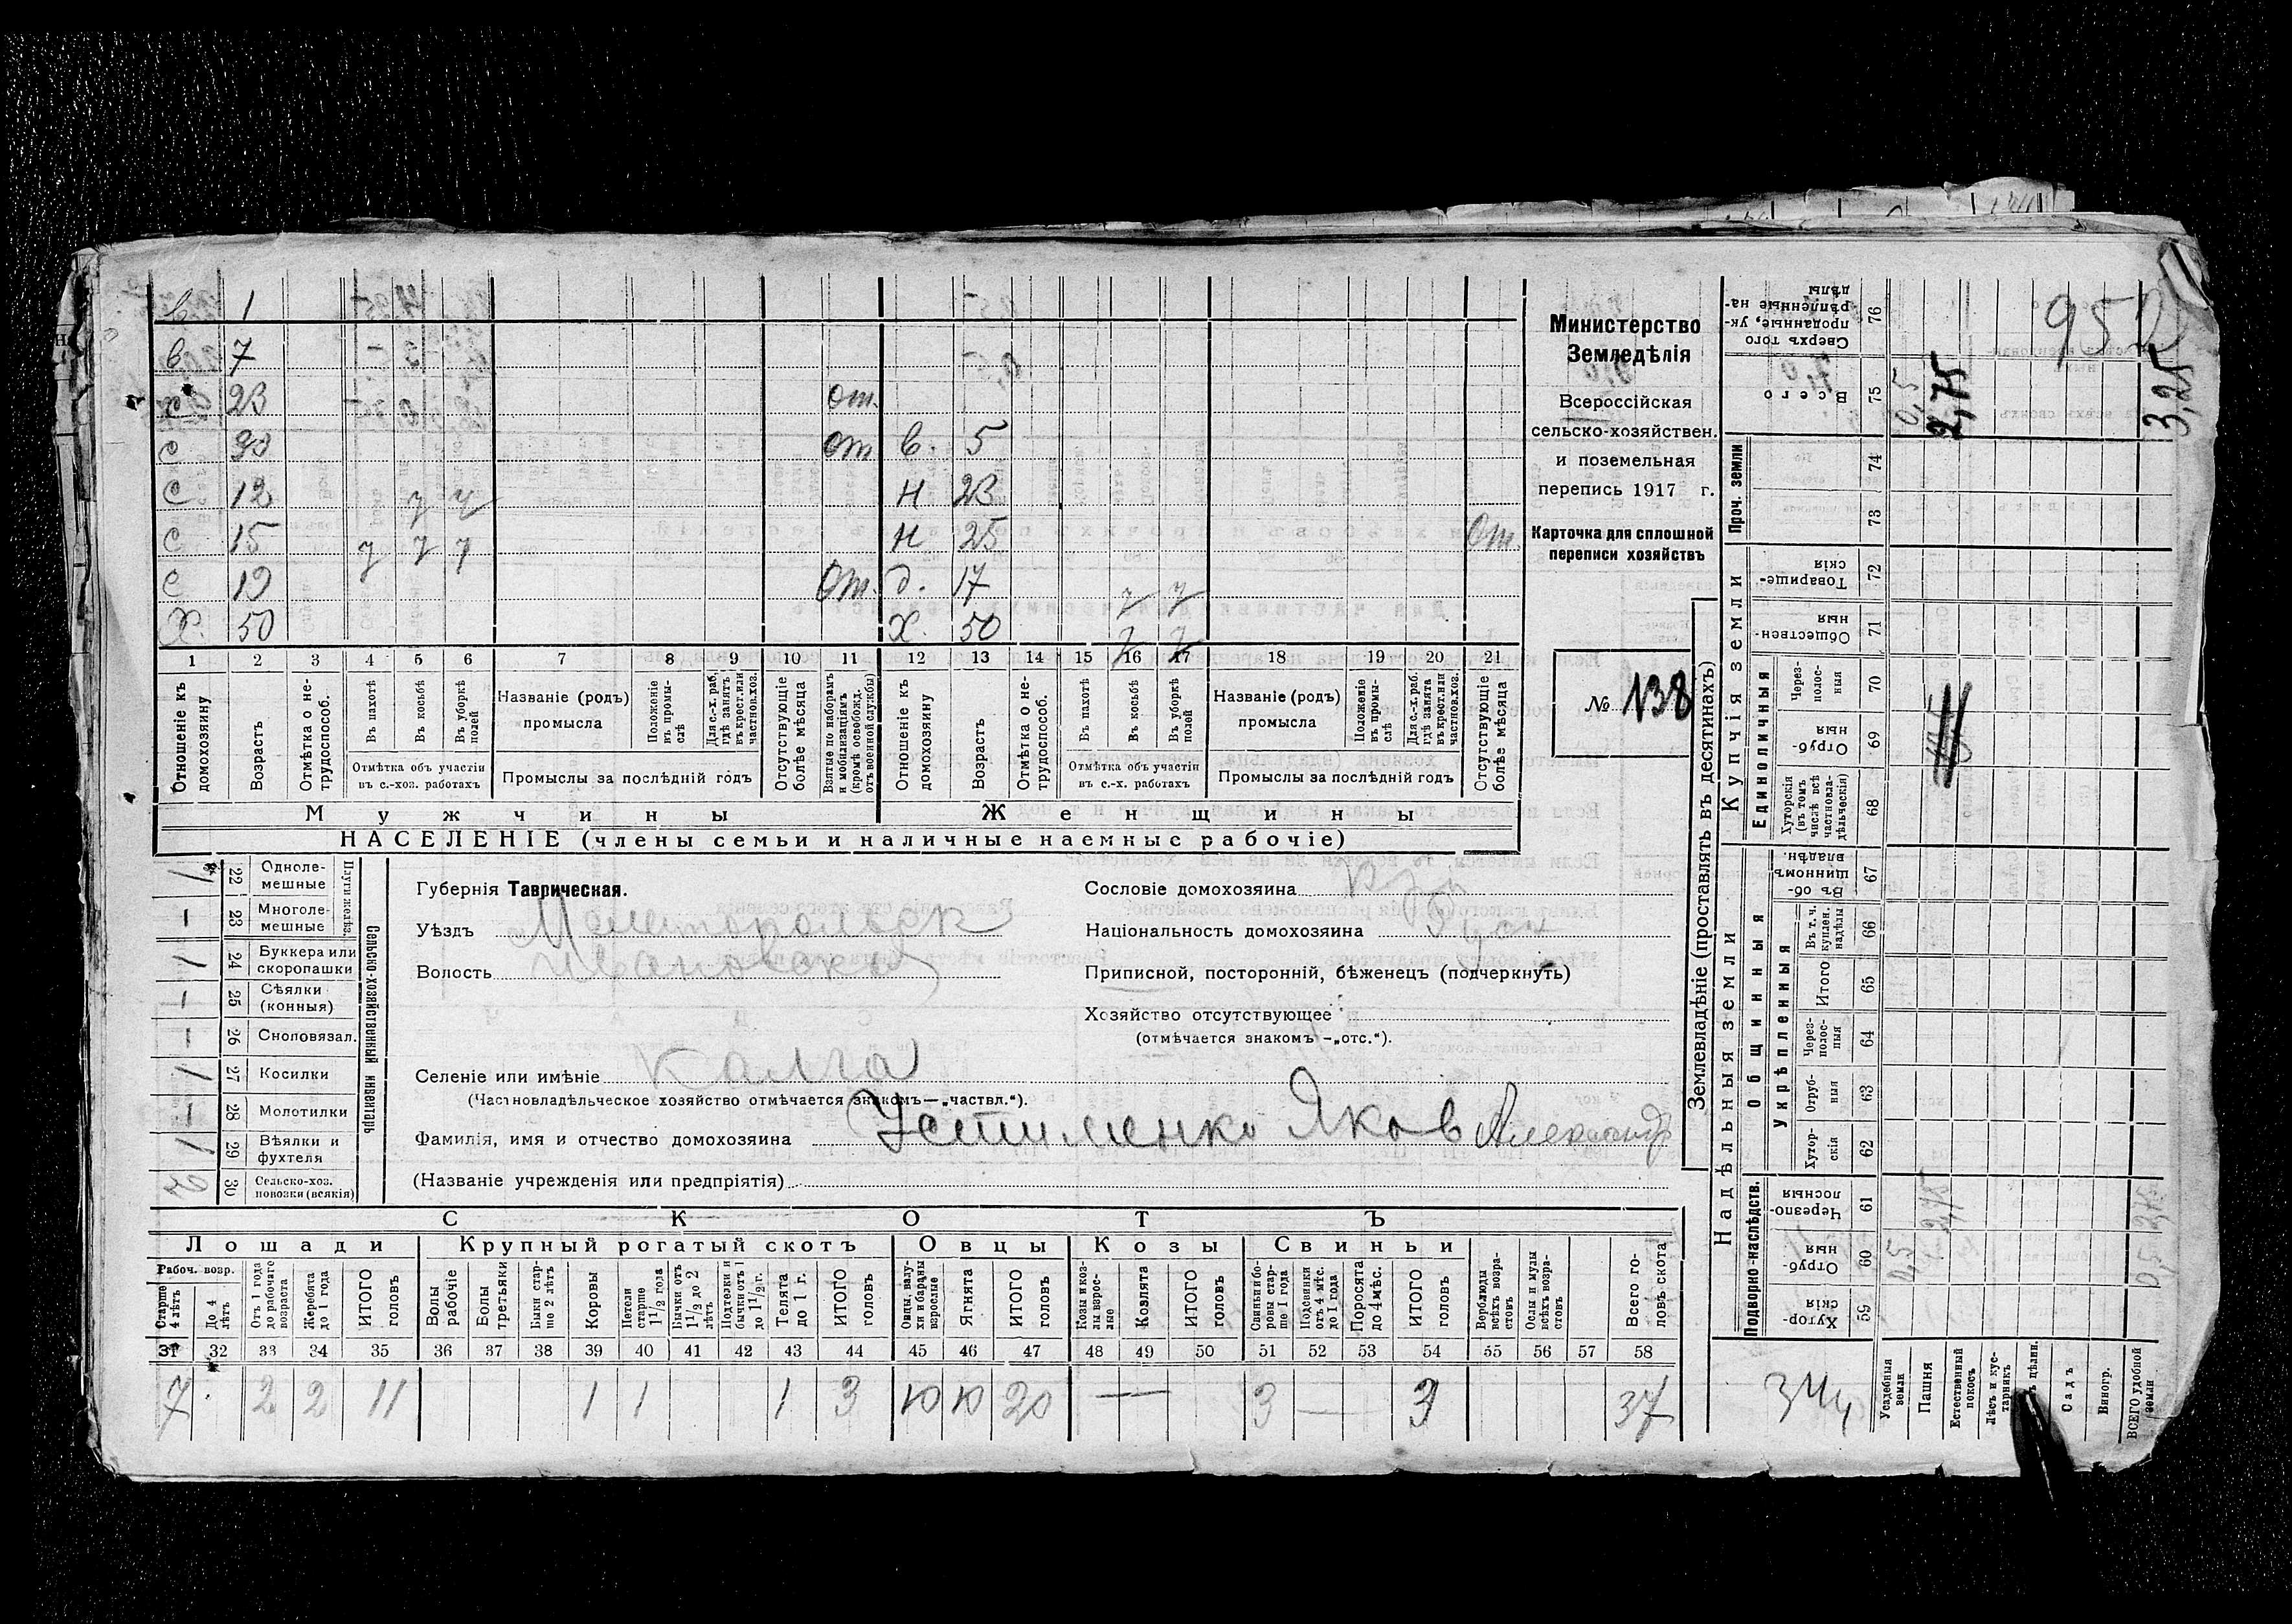 952
в 1
в 7
с 23 от.
с 93 от в. 5
с 12 у у н 23
с 15 у у у н 25 от.
с 19 от. д. 17 у у
Х. 50 Х. 50 у у
1 2 3 4 5 6 7 8 9 10 11 12 13 14 15 16 17 18 19 20 21
Отношеніе къ домохозяину
Возрастъ
Отмѣтка о нетрудоспособ.
Въ пахотѣ
Въ косьбѣ
Въ уборкѣ полей
Отмѣтка объ участіи въ с.-хоз. работахъ
Названіе (родъ) промысла
Положеніе въ промыслѣ
Для с.-х. раб. гдѣ занятъ въ крест. или частнов. хоз.
Промыслы за послѣдній годъ
Отсутствующіе болѣе мѣсяца
Взятые по наборамъ и мобилизаціямъ (кромѣ освобожд. отъ военной службы)
Отношеніе къ домохозяину
Возрастъ
Отмѣтка о нетрудоспособ.
Въ пахотѣ
Въ косьбѣ
Въ уборкѣ полей
Отмѣтка объ участіи въ с.-х. работахъ
Названіе (родъ) промысла
Положеніе въ промыслѣ
Для с.-х. раб. гдѣ занята въ крест. или частнов. хоз.
Промыслы за послѣдній годъ
Отсутствующіе болѣе мѣсяца
Мужчины Женщины
НАСЕЛЕНІЕ (члены семьи и наличные наемные рабочіе)
Министерство
Земледѣлія
Всероссійская
сельско-хозяйствен.
и поземельная
перепись 1917 г.
Карточка для сплошной
переписи хозяйствъ
№ 138
Сельско-хозяйственный инвентарь
Плуги желѣз.
22 Одноле-мешные 1
23 Многоле-мешные —
24 Буккера или скоропашки 1
25 Сѣялки (конныя) —
26 Сноповязал. —
27 Косилки 1
28 Молотилки —
29 Вѣялки и фухтеля 1
30 Сельско-хоз. повозки (всякія) 2
Губернія Таврическая.
Уѣздъ Мелитопольск
Волость Ивановская
Селеніе или имѣніе Калга
(Частновладѣльческое хозяйство отмѣчается знакомъ—„частвл.“).
Фамилія, имя и отчество домохозяина Устименко Яков Александр
(Названіе учрежденія или предпріятія)
Сословіе домохозяина
Національность домохозяина
Приписной, посторонній, бѣженецъ (подчеркнуть)
Хозяйство отсутствующее
(отмѣчается знакомъ -„отс.“).
СКОТЪ
Лошади Крупный рогатый скотъ Овцы Козы Свиньи
Рабоч. возр.
Старше 4 лѣтъ
До 4 лѣтъ
Отъ 1 года до рабочаго возраста
Жеребята до 1 года
ИТОГО головъ
Волы рабочіе
Волы третьяки
Быки старше 2 лѣтъ
Коровы
Нетели старше 1 1/2 года
Бычки отъ 1 1/2 до 2 лѣтъ
Подтелки и бычки отъ 1 до 1 1/2 г.
Телята до 1 г.
ИТОГО головъ
Овцы, валухи и бараны взрослые
Ягнята
ИТОГО головъ
Козы и козлы взрослые
Козлята
ИТОГО головъ
Свиньи и боровы старше 1 года
Подсвинки отъ 4 мѣс. до 1 года
Поросята до 4 мѣс.
ИТОГО головъ
Верблюды всѣхъ возрастовъ
Ослы и мулы всѣхъ возрастовъ
Всего головъ скота
31 32 33 34 35 36 37 38 39 40 41 42 43 44 45 46 47 48 49 50 51 52 53 54 55 56 57 58
7 2 2 11 1 1 1 3 10 10 20 — 3 — 3 37
Землевладѣніе (проставлять въ десятинахъ)
Надѣльныя земли Купчія земли Проч. земли
Подворно-наслѣдств. Общинныя Укрѣпленныя Единоличныя
59 Хуторскія
60 Отрубныя 0,5 0,5
61 Черезполосныя 2,75 2,75
62 Хуторскія
63 Отрубныя
64 Черезполосныя
65 Итого
66 Въ т. ч. куплен. надѣлы
67 Въ общинномъ владѣн.
68 Хуторскія (въ томъ числѣ всѣ частновладѣльческія)
69 Отрубныя
70 Черезполосныя
71 Общественныя
72 Товарищескія
73
74
75 Всего 0,5 2,75 3,25
76 Сверхъ того проданные, укрѣпленные надѣлы
Усадебныя земли
Пашня
Естественный покосъ
Лѣсъ и кустарникъ
цѣлин.
Садъ
Виногр.
ВСЕГО удобной земли